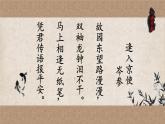 逢入京使
岑参
故园东望路漫漫，
双袖龙钟泪不干。
马上相逢无纸笔，
凭君传语报平安。